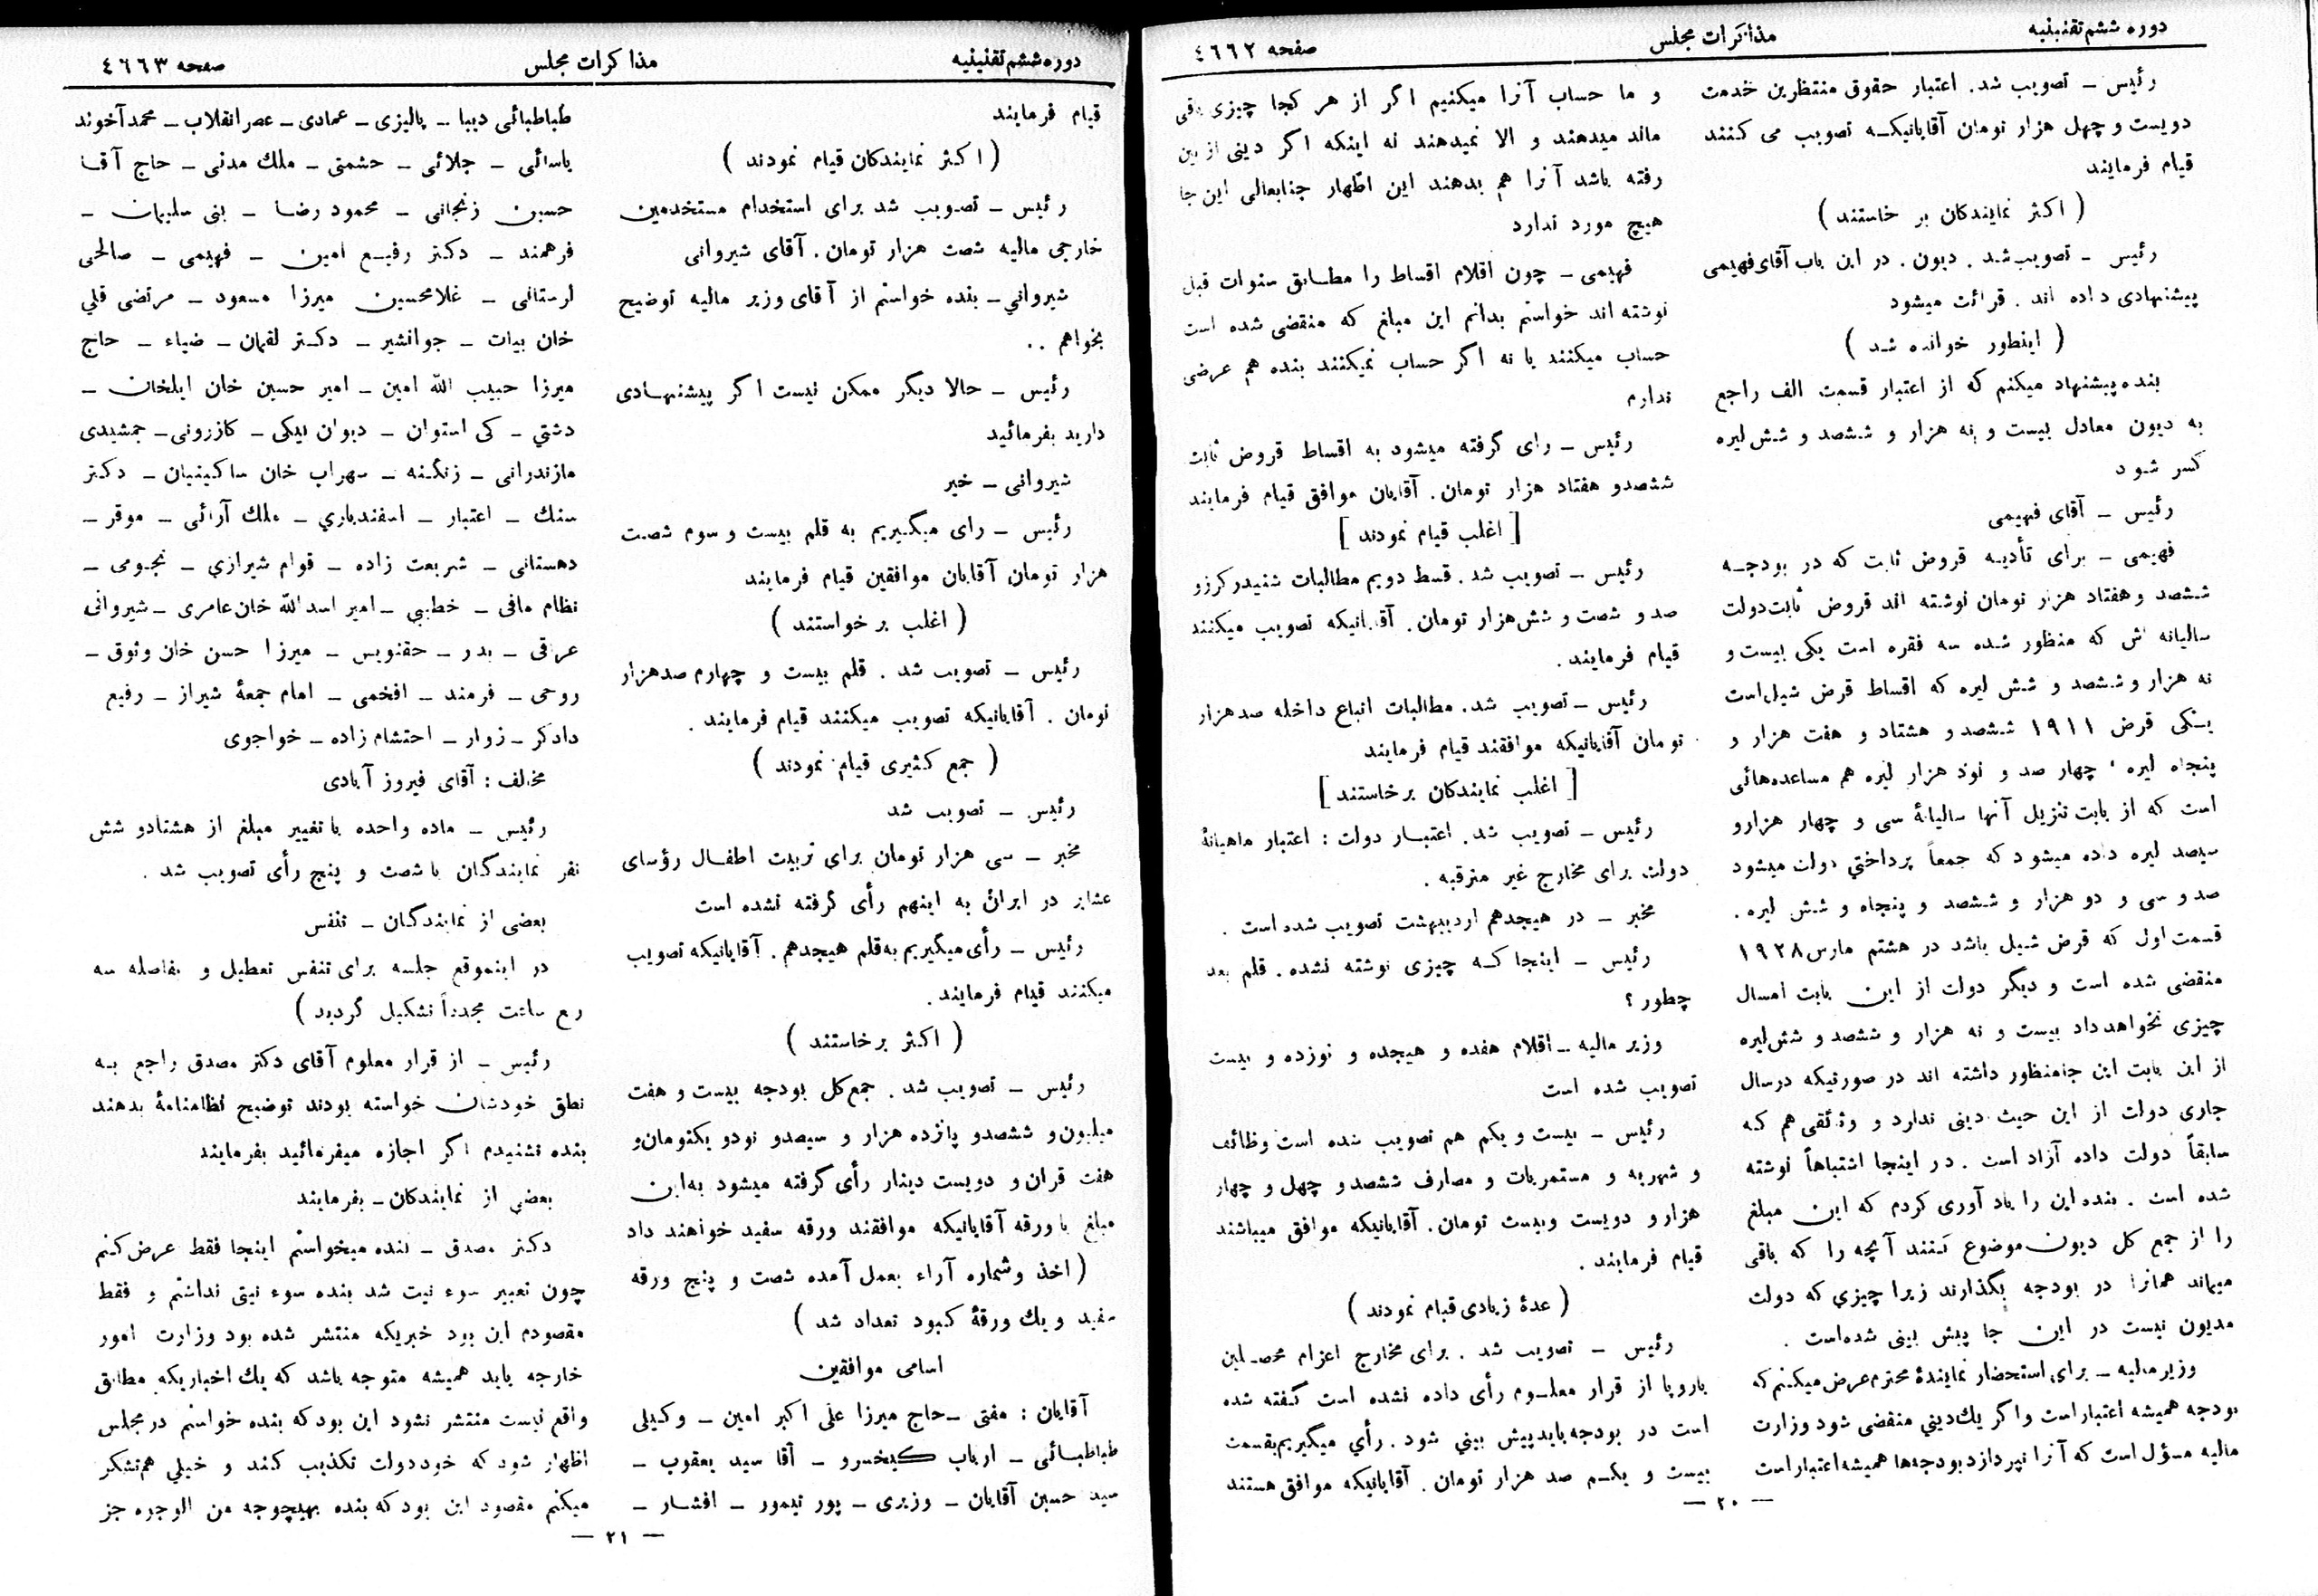 دوره ششم تقنینیه
مذاکرات مجلس
صفحه ٤٦٦٢
رئیس ـ تصویب شد. اعتبار حقوق منتظرین خدمت
دویست و چهل هزار تومان آقایانیکه تصویب می کنند
قیام فرمایند
( اکثر نمایندکان بر خاستند )
رئیس ـ تصویب شد . دیون . در این باب آقای فهیمی
پیشنهادی داده اند . قرائت میشود
( اینطور خوانده شد )
بنده پیشنهاد میکنم که از اعتبار قسمت الف راجع
به دیون معادل بیست و نه هزار و ششصد و شش لیره
کسر شود
رئیس ـ آقای فهیمی
فهیمی ـ برای تأدیه قروض ثابت که در بودجه
ششصد و هفتاد هزار تومان نوشته اند قروض ثابت دولت
سالیانه اش که منظور شده سه فقره است یکی بیست و
نه هزار و ششصد و شش لیره که اقساط قرض شیل است
یکی قرض ۱۹۱۱ ششصد و هشتاد و هفت هزار و
پنجاه لیره ، چهار صد و نود هزار لیره هم مساعده هائی
است که از بابت تنزیل آنها سالیانهٔ سی و چهار هزار و
سیصد لیره داده میشود که جمعاً پرداختي دولت میشود
صد و سی و دو هزار و ششصد و پنجاه و شش لیره .
قسمت اول که قرض شیل باشد در هشتم مارس ۱۹۲۸
منقضی شده است و دیگر دولت از این بابت امسال
چیزی نخواهد داد بیست و نه هزار و ششصد و شش لیره
از این بابت این جا منظور داشته اند در صورتیکه در سال
جاری دولت از این حیث دینی ندارد و وثائقی هم که
سابقاً دولت داده آزاد است . در اینجا اشتباهاً نوشته
شده است . بنده این را یاد آوری کردم که این مبلغ
را از جمع کل دیون موضوع کنند آنچه را که باقی
میماند همانرا در بودجه بگذارند زیرا چیزي که دولت
مدیون نیست در این جا پیش بینی شده است .
وزیر مالیه ـ برای استحضار نمایندهٔ محترم عرض میکنم که
بودجه همیشه اعتبار است و اکر یك دیني منقضی شود وزارت
مالیه مسؤل است که آنرا نپردازد بودجه ها همیشه اعتبار است
و ما حساب آنرا میکنیم اگر از هر کجا چیزی باقی
ماند میدهند و الا نمیدهند نه اینکه اگر دینی از بین
رفته باشد آنرا هم بدهند این اظهار جنابعالی این جا
هیچ مورد ندارد
فهیمی ـ چون اقلام اقساط را مطابق سنوات قبل
نوشته اند خواستم بدانم این مبلغ که منقضی شده است
حساب میکنند یا نه اگر حساب نمیکنند بنده هم عرضی
ندارم
رئیس ـ رای گرفته میشود به اقساط قروض ثابت
ششصدو هفتاد هزار تومان. آقایان موافق قیام فرمایند
[ اغلب قیام نمودند ]
رئیس ـ تصویب شد. قسط دویم مطالبات شنیدر کرزو
صد و شصت و شش هزار تومان. آقایانیکه تصویب میکنند
قیام فرمایند .
رئیس ـ تصویب شد. مطالبات اتباع داخله صد هزار
تومان آقایانیکه موافقند قیام فرمایند
[ اغلب نمایندکان برخاستند ]
رئیس ـ تصویب شد. اعتبار دولت : اعتبار ماهیانهٔ
دولت برای مخارج غیر مترقبه .
مخبر ـ در هیجدهم اردیبهشت تصویب شده است .
رئیس ـ اینجا که چیزی نوشته نشده . قلم بعد
چطور ؟
وزیر مالیه ـ اقلام هفده و هیجده و نوزده و بیست
تصویب شده است
رئیس ـ بیست و یکم هم تصویب شده است وظائف
و شهریه و مستمریات و مصارف ششصد و چهل و چهار
هزار و دویست و بیست تومان. آقایانیکه موافق میباشند
قیام فرمایند .
( عدهٔ زیادی قیام نمودند )
رئیس ـ تصویب شد . برای مخارج اعزام محصلین
باروپا از قرار معلوم رأی داده نشده است گفته شده
است در بودجه باید پیش بیني شود . رأي میگیریم بقسمت
بیست و یکم صد هزار تومان . آقایانیکه موافق هستند
— ۲۰ —
دوره ششم تقنینیه
مذاکرات مجلس
صفحه ٤٦٦٣
قیام فرمایند
( اکثر نمایندکان قیام نمودند )
رئیس ـ تصویب شد برای استخدام مستخدمین
خارجی مالیه شصت هزار تومان. آقای شیروانی
شیرواني ـ بنده خواستم از آقای وزیر مالیه توضیح
بخواهم ..
رئیس ـ حالا دیگر ممکن نیست اکر پیشنهادی
دارید بفرمائید
شیروانی ـ خیر
رئیس ـ رای میگیریم به قلم بیست و سوم شصت
هزار تومان آقایان موافقین قیام فرمایند
( اغلب بر خواستند )
رئیس ـ تصویب شد . قلم بیست و چهارم صد هزار
تومان . آقایانیکه تصویب میکنند قیام فرمایند .
( جمع کثیری قیام نمودند )
رئیس ـ تصویب شد
مخبر ـ سی هزار تومان برای تربیت اطفال رؤسای
عشایر در ایران به اینهم رأی گرفته نشده است
رئیس ـ رأی میگیریم به قلم هیجدهم . آقایانیکه تصویب
میکنند قیام فرمایند .
( اکثر برخاستند )
رئیس ـ تصویب شد . جمع کل بودجه بیست و هفت
میلیون و ششصدو پانزده هزار و سیصدو نودو یکتومان و
هفت قران و دویست دینار رأی گرفته میشود به این
مبلغ با ورقه آقایانیکه موافقند ورقه سفید خواهند داد
( اخذ و شماره آراء بعمل آمده شصت و پنج ورقه
سفید و یك ورقهٔ کبود تعداد شد )
اسامی موافقین
آقایان : مفتی ـ حاج میرزا علی اکبر امین ـ وکیلی
طباطبائی ـ ارباب کیخسرو ـ آقا سید یعقوب ـ
سید حسین آقایان ـ وزیری ـ پور تیمور ـ افشار ـ
طباطبائی دیبا ـ پالیزی ـ عمادی ـ عصر انقلاب ـ محمد آخوند
یاسائی ـ جلائی ـ حشمتی ـ ملك مدنی ـ حاج آقا
حسین زنجانی ـ محمود رضا ـ بنی سلیمان ـ
فرهمند ـ دکتر رفیع امین ـ فهیمی ـ صالحی
لرستانی ـ غلامحسین میرزا مسعود ـ مرتضی قلی
خان بیات ـ جوانشیر ـ دکتر لقمان ـ ضیاء ـ حاج
میرزا حبیب الله امین ـ امیر حسین خان ایلخان ـ
دشتي ـ کی استوان ـ دیوان بیکی ـ کازرونی ـ جمشیدی
مازندرانی ـ زنگنه ـ سهراب خان ساکینیان ـ دکتر
سنك ـ اعتبار ـ اسفندیاري ـ ملك آرائی ـ موقر ـ
دهستانی ـ شریعت زاده ـ قوام شیرازي ـ نجومی ـ
نظام مافی ـ خطیبي ـ امیر اسد الله خان عامری ـ شیروانی
عراقی ـ بدر ـ حقنویس ـ میرزا حسن خان وثوق ـ
روحی ـ فرمند ـ افخمی ـ امام جمعهٔ شیراز ـ رفیع
دادکر ـ زوار ـ احتشام زاده ـ خواجوی
مخالف : آقای فیروز آبادی
رئیس ـ ماده واحده با تغییر مبلغ از هشتادو شش
نفر نمایندگان با شصت و پنج رأی تصویب شد .
بعضی از نمایندگان ـ تنفس
در اینموقع جلسه برای تنفس تعطیل و بفاصله سه
ربع ساعت مجدداً تشکیل گردید )
رئیس ـ از قرار معلوم آقای دکتر مصدق راجع به
نطق خودشان خواسته بودند توضیح نظامنامهٔ بدهند
بنده نشنیدم اکر اجازه میفرمائید بفرمایند
بعضي از نمایندکان ـ بفرمایند
دکتر مصدق ـ بنده میخواستم اینجا فقط عرض کنم
چون تعبیر سوء نیت شد بنده سوء نیتی نداشتم و فقط
مقصودم این بود خبریکه منتشر شده بود وزارت امور
خارجه باید همیشه متوجه باشد که یك اخباریکه مطابق
واقع نیست منتشر نشود این بود که بنده خواستم در مجلس
اظهار شود که خود دولت تکذیب کند و خیلي هم تشکر
میکنم مقصود این بود که بنده بهیچوجه من الوجوه جز
— ۲۱ —